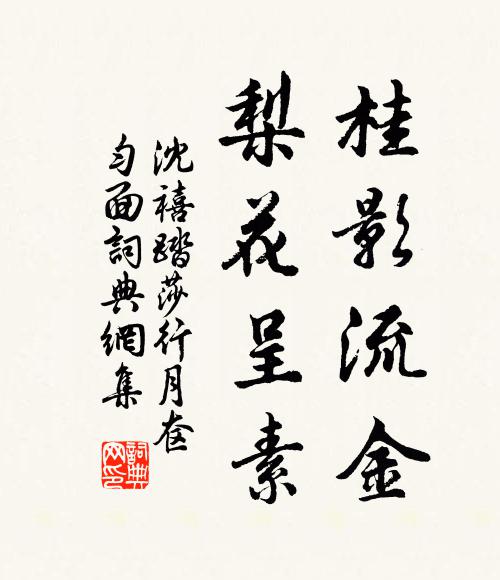 桂影流金
梨花呈素
沈禧踏莎行月夜
勻面詞典網集
詞典網印